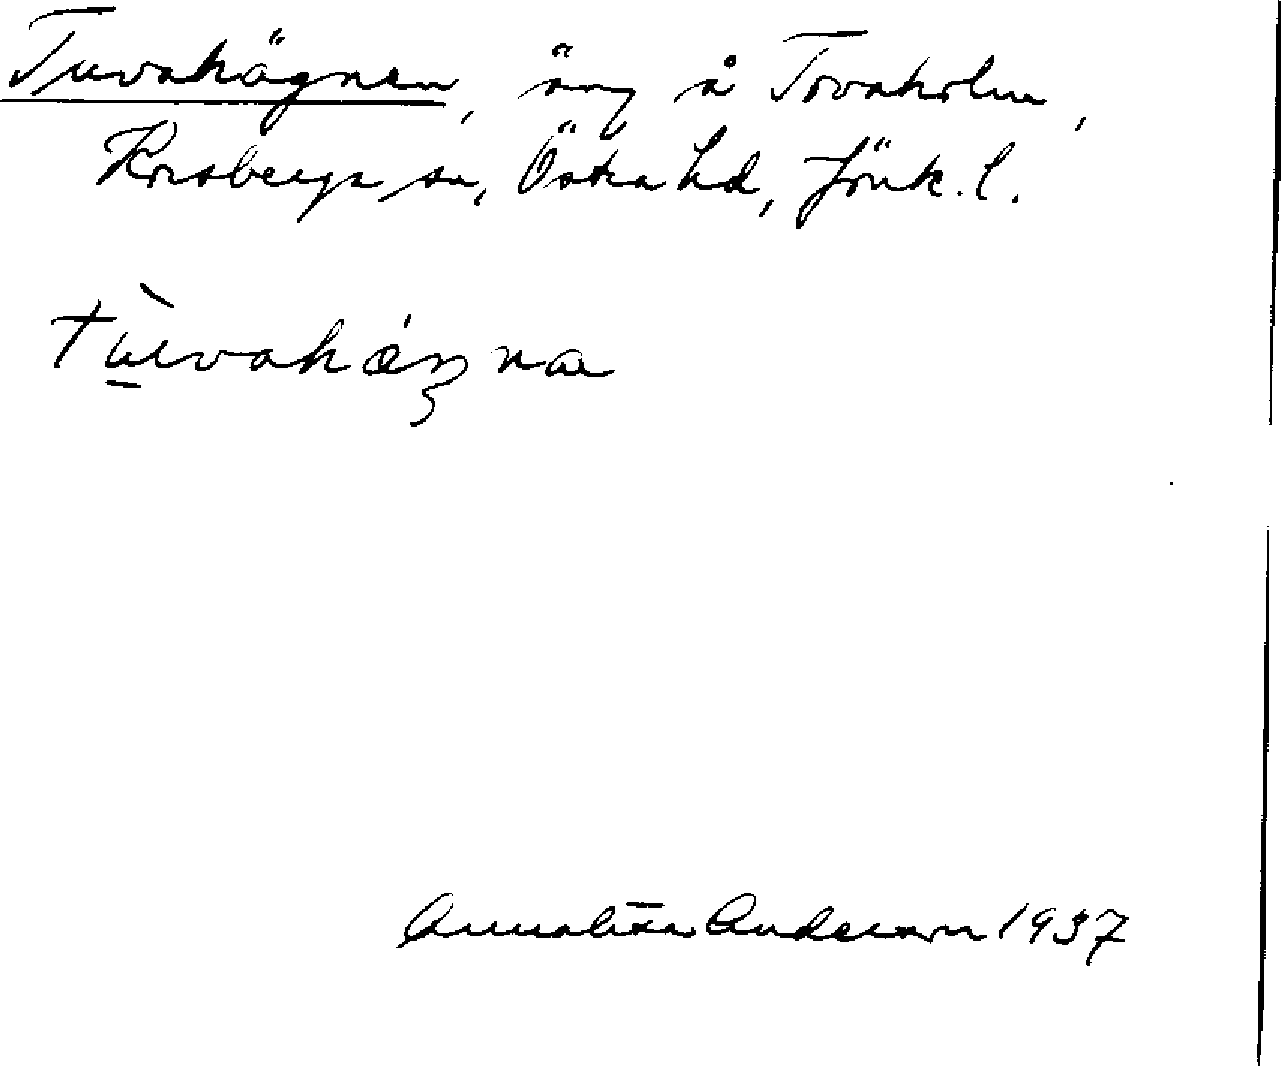 Tuvahägnen, äng å Tovaholm,
Korsberga sn, Östra hd, Jönk. l.
tùvahäŋna
Annalisa Anderson 1937